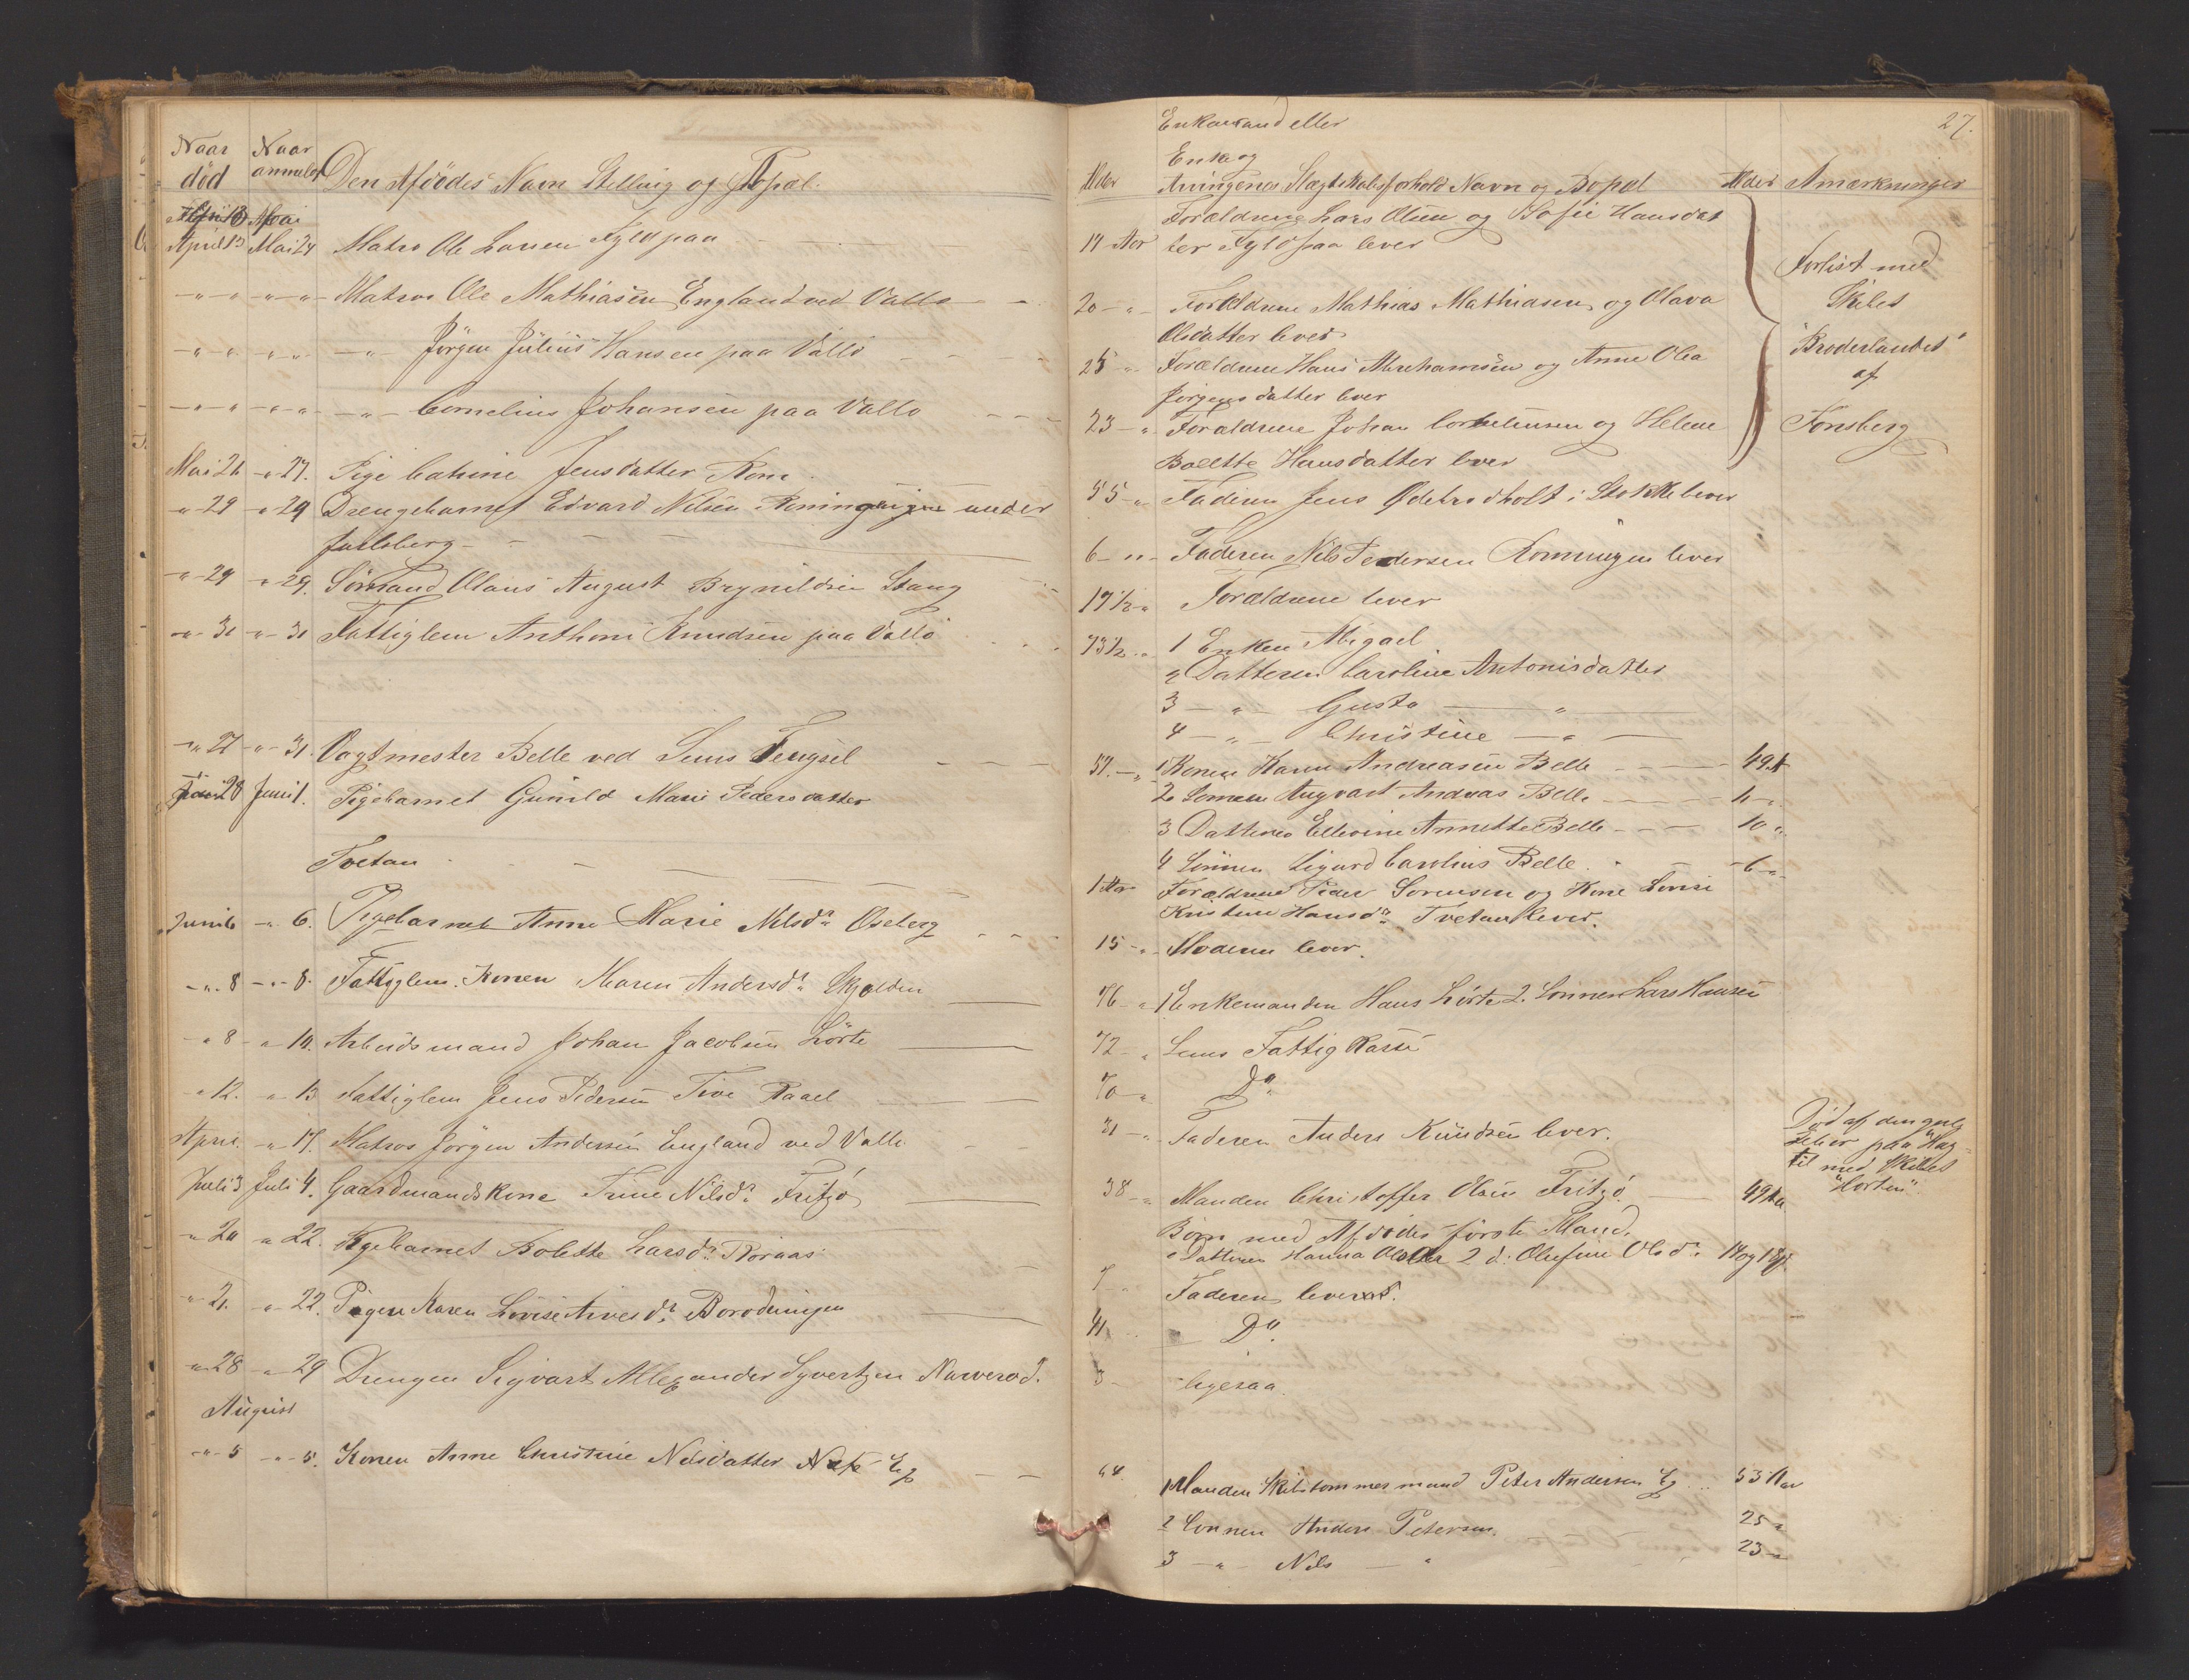 Naar død
Naar anmeldt
Den Afdødes Navn Stilling og Bopæl.
April 13 Mai 24 Matros Ole Larsen Fyldpaa
-"- " -"- " - Matros Ole Mathiasen England ved Vallø
-"- " -"- " -"- Jørgen Julius Hansen paa Vallø
-"- " -"- " -"- Cornelius Johansen paa Vallø
Mai 26 -"- 27. Pige Cathrine Jensdatter Rom
-"- 29 -"- 29 Drengebarnet Edvard Nilsen Romingen under
Jarlsberg
-"- 29 -"- 29. Sømand Olaus August Brynildsen Stang
-"- 31 -"- 31 Fattiglem Anthoni Knudsen paa Vallø
-"- 27 -"- 31. Vagtmester Belle ved Sems Fengsel
28 Juni 1. Pigebarnet Gunild Marie Pedersdatter
Tvetan
Juni 6 -"- 6. Pigebarnet Anne Marie Nilsdr. Oseberg
-"- 8 -"- 8. Fattiglem. Konen Maren Andersdr.
-"- 8 -"- 10. Arbeidsmand Johan Jacobsen Lørte
-"- 12. -"- 13 Fattiglem Jens Pedersen
April -"- 17. Matros Jørgen Andersen England ved Vallø
Juli 3 Juli 4. Gaardmandskone Trine Nilsdr. Fritzø
-"- 20 -"- 22. Pigebarnet Bolette Larsdr. Roraas
-"- 21. -"- 22. Pigen Karen Lovise Arvesdr.
-"- 28 -"- 29 Drengen Sigvart Allexander Syvertzen Narverød.
August
-"- 5 -"- 5. Konen Anne Christine Nilsdatter Eg
27.
Enkemand eller
Enke og
Alder Arvingenes Slægtskabsforhold Navn og Bopæl Alder Anmærkninger
Forældrene Lars Olsen og Sofie Hansdat
19 Aar ter Fyldpaa lever
20 -"- Forældrene Mathias Mathiasen og Olava
Olsdatter lever
25 -"- Forældrene Hans Abrahamsen og Anne Olea
Jørgensdatter lever
23 -"- Forældrene Johan Corneliusen og Helene
Bolette Hansdatter lever
Forlist med
Skibet
"Broderlandet"
af
Tønsberg
55 -"- Faderen Jens Ødekrodholt i Stokke lever
6 -"- Faderen Nils Pedersen Romingen lever
19 1/2 " Forældrene lever
73 1/2 " 1 Enken Abigael
2 Datteren Caroline Antonisdatter
3 -"- Gusta -"-
4 -"- Christine -"-
57. -"- 1 Konen Karen Andreasen Belle 49 A
2 Sønnen Andreas Belle
3 Datteren Ellevine Annette Belle 10 "
4 Sønnen Sigurd Carolius Belle 6 "
1 Aar Forældrene Peder Sorensen og Kone Lovise
Kristine Hansdr. Tvetan lever.
15 -"- Moderen lever.
76 -"- 1 Enkemanden Hans Lørte 2. Sønnen Lars Hansen
72 -"- Sems Fattigkasse
70 -"- Do.
31 -"- Faderen Anders Knudsen lever.
Død af den gule
Feber paa Hay-
til med Skibet
"Horten"
38 -"- Manden Christoffer Olsen Fritzø 49 Aa
Børn med Afdødes første Mand.
1 Datteren Hanna Olsdtr 2 d. Olufine Olsdr. 14 og 18
7 - Faderen lever.
41 " Do.
3 - ligesaa
44. 1 Manden Skibstømmermand Peter Andersen Eg 53 Aar
2 Sønnen Anders Petersen. 25 "
3 -"- Nils -"- 23 "